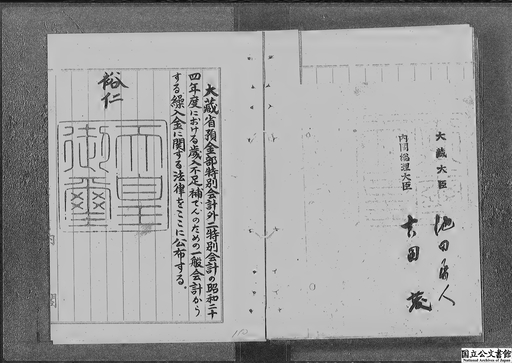 大蔵省預金部特別会計外二特別会計の昭和二十
四年度における歳入不足補てんのための一般会計から
する繰入金に関する法律をここに公布する。
裕仁
天皇
御璽
内閣総理大臣
吉田茂
大蔵大臣
池田勇人
国立公文書館
National Archives of Japan